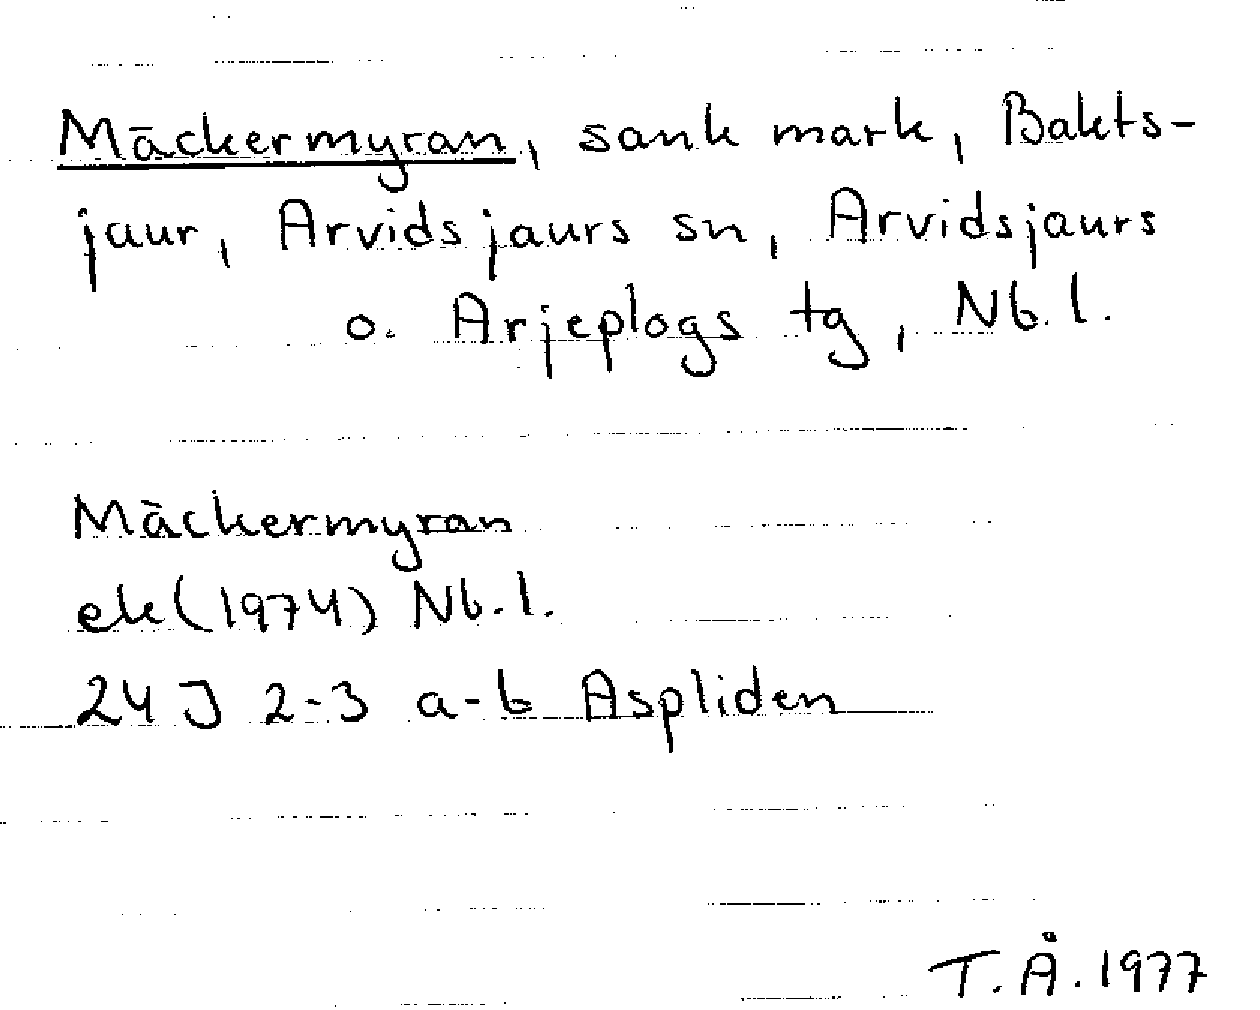 Mäckermyran, sank mark, Bakts-
jaur, Arvidsjaurs sn, Arvidsjaurs
o. Arjeplogs tg, Nb. l.
Mäckermyran
ek (1974) Nb. l.
24 J 2-3 a-b Aspliden
T. Å. 1977